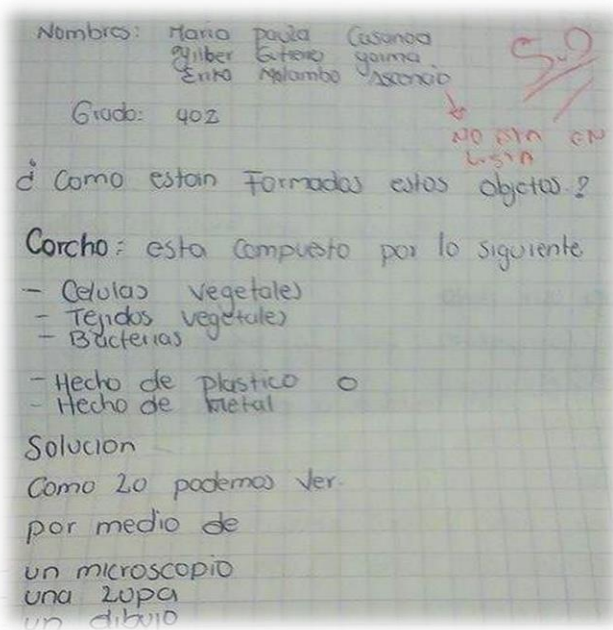 Nombres: Maria paula Casanoa
Yilber Gutiere yaima
Erika Molambo Asconcio
5.0
NO ESTA EN
LISTA
Grado: 402
¿ Como estan Formados estos objetos.?
Corcho: esta compuesto por lo siguiente
- Celulas vegetales
- Tejidos vegetales
- Bacterias
- Hecho de plastico o
- Hecho de metal
Solucion
Como Lo podemos ver.
por medio de
un microscopio
una Lupa
un dibujo